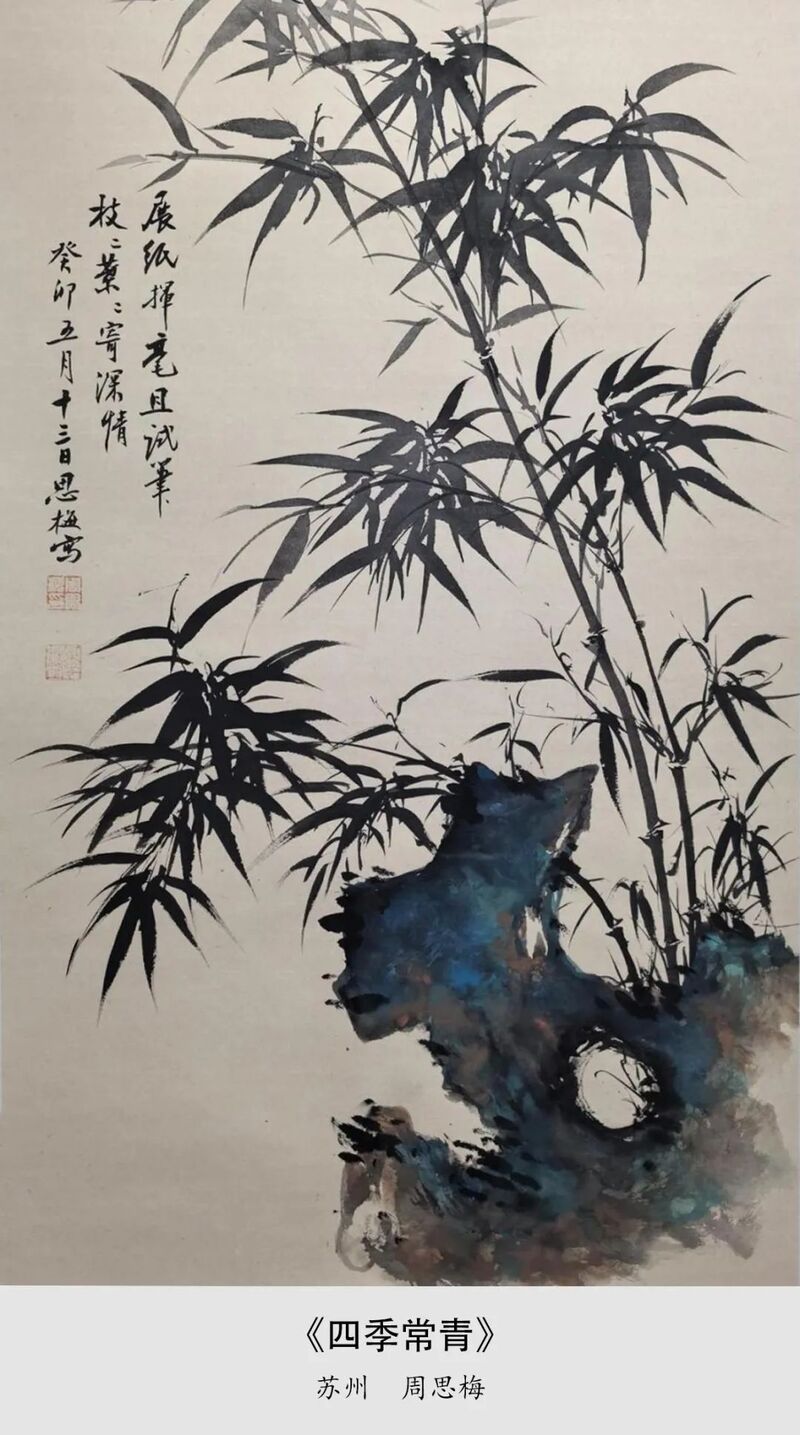 展纸挥毫且试笔
枝〻叶〻寄深情
癸卯五月十三日思梅写
《四季常青》
苏州 周思梅